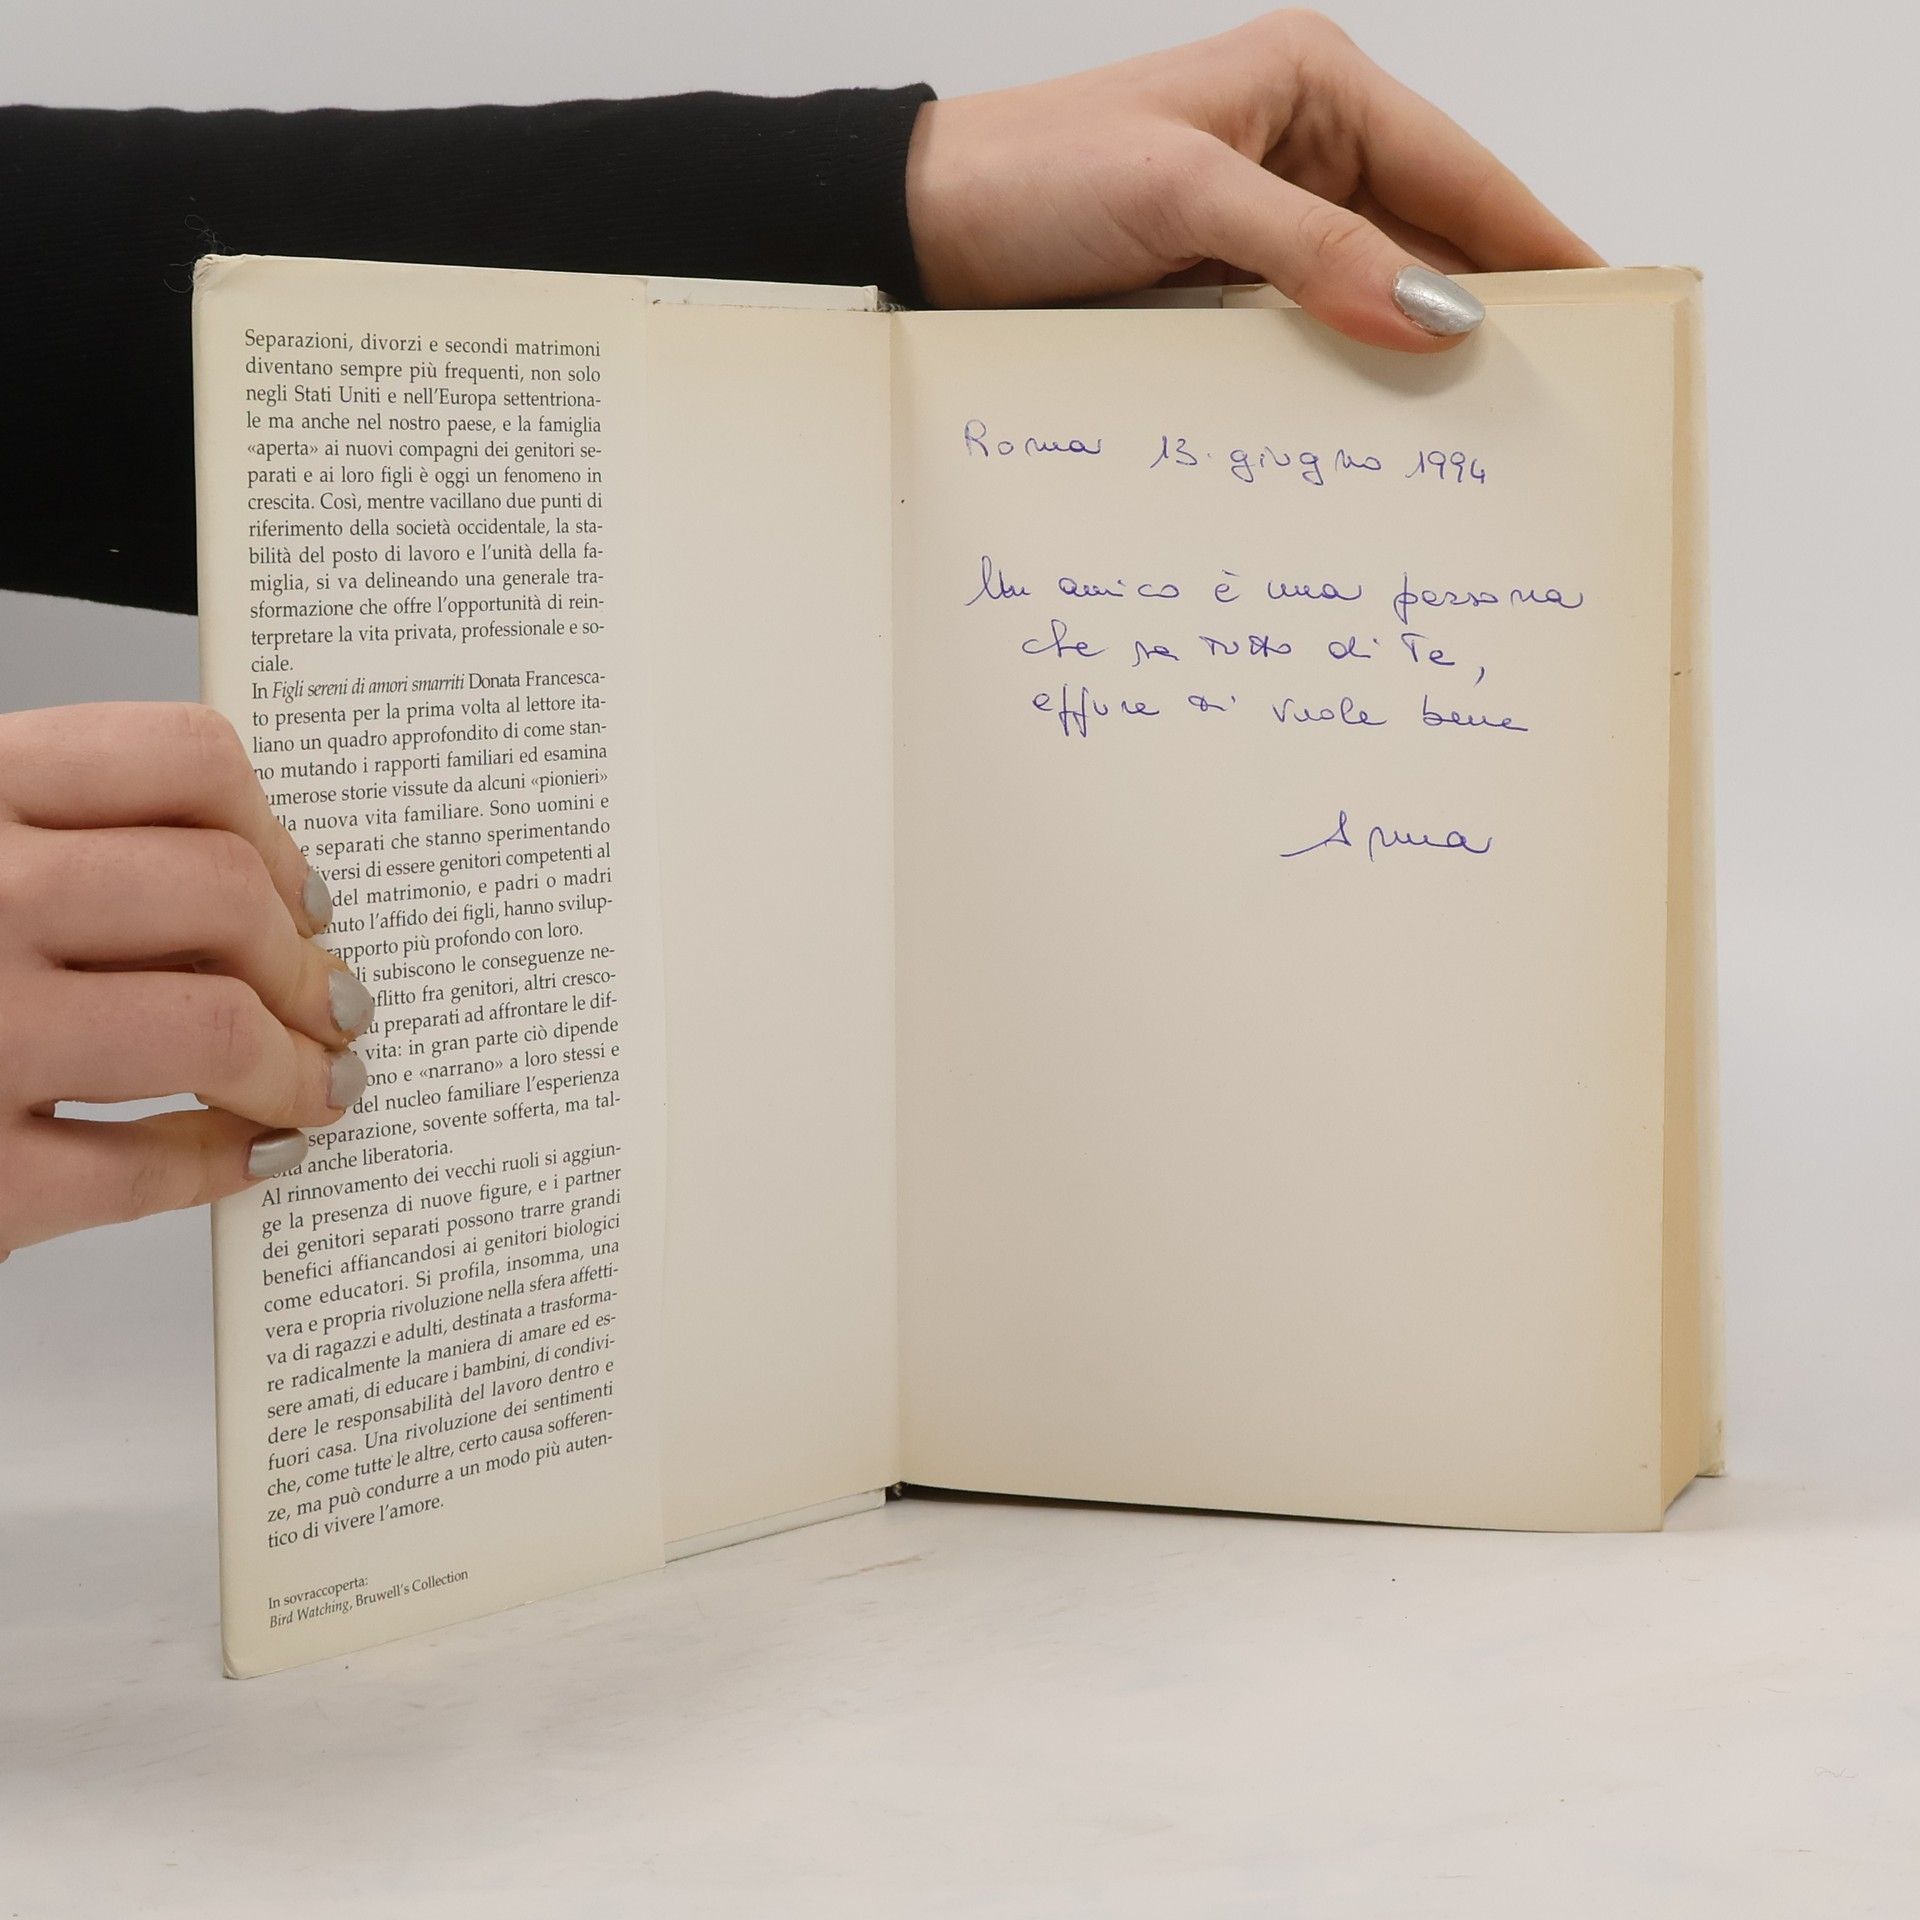 Separazioni, divorzi e secondi matrimoni
diventano sempre più frequenti, non solo
negli Stati Uniti e nell'Europa settentriona-
le ma anche nel nostro paese, e la famiglia
«aperta» ai nuovi compagni dei genitori se-
parati e ai loro figli è oggi un fenomeno in
crescita. Così, mentre vacillano due punti di
riferimento della società occidentale, la sta-
bilità del posto di lavoro e l'unità della fa-
miglia, si va delineando una generale tra-
sformazione che offre l'opportunità di rein-
terpretare la vita privata, professionale e so-
ciale.
In Figli sereni di amori smarriti Donata Francesca-
to presenta per la prima volta al lettore ita-
liano un quadro approfondito di come stan-
no mutando i rapporti familiari ed esamina
umerose storie vissute da alcuni «pionieri»
lla nuova vita familiare. Sono uomini e
e separati che stanno sperimentando
iversi di essere genitori competenti al
del matrimonio, e padri o madri
nuto l'affido dei figli, hanno svilup-
rapporto più profondo con loro.
li subiscono le conseguenze ne-
flitto fra genitori, altri cresco-
ù preparati ad affrontare le dif-
vita: in gran parte ciò dipende
ono e «narrano» a loro stessi e
del nucleo familiare l'esperienza
separazione, sovente sofferta, ma tal-
anche liberatoria.
Al rinnovamento dei vecchi ruoli si aggiun-
ge la presenza di nuove figure, e i partner
dei genitori separati possono trarre grandi
benefici affiancandosi ai genitori biologici
come educatori. Si profila, insomma, una
vera e propria rivoluzione nella sfera affetti-
va di ragazzi e adulti, destinata a trasforma-
re radicalmente la maniera di amare ed es-
sere amati, di educare i bambini, di condivi-
dere le responsabilità del lavoro dentro e
fuori casa. Una rivoluzione dei sentimenti
che, come tutte le altre, certo causa sofferen-
ze, ma può condurre a un modo più auten-
tico di vivere l'amore.
In sovraccoperta:
Bird Watching, Bruwell's Collection
Roma 13. giugno 1994
Un amico è una persona
che sa tutto di Te,
eppure ti vuole bene
Anna